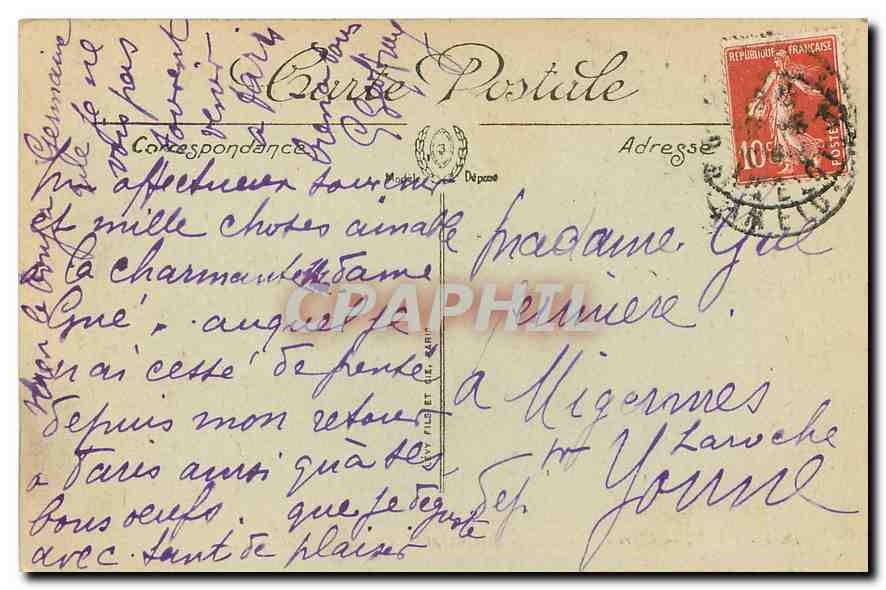 Carte Postale
Correspondance
Adresse
Modèle Déposé
RÉPUBLIQUE FRANÇAISE
10c
POSTES
un affectueux souvenir
et mille choses aimable
à charmante Madame
Gué. auquel je
n'ai cessé de pensé
depuis mon retour
à Paris ainsi qu'à ses
bons oeufs. que je déguste
avec tant de plaisir
Germaine
que je ne
vois pas
souvent
venir
à Paris
LÉVY FILS ET CIE, PARIS
Madame Gué
à Migennes
pr Laroche
dep Yonne
CPAPHIL